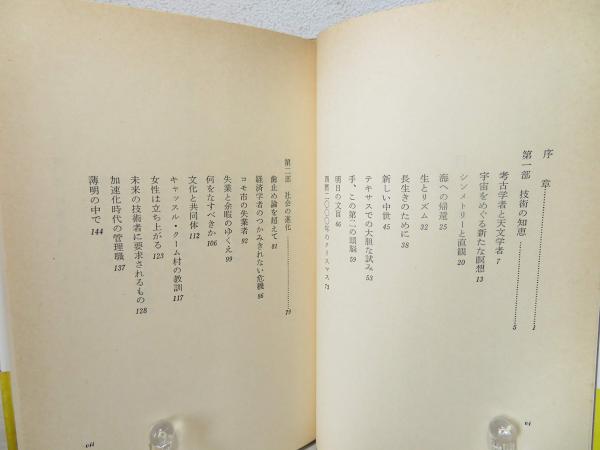 序　章………………………………1
第一部　技術の知恵………………5
考古学者と天文学者 7
宇宙をめぐる新たな瞑想 13
シンメトリーと直観 20
海への帰還 25
生とリズム 32
長生きのために 38
新しい中世 45
テキサスでの大胆な試み 53
手、この第二の頭脳 59
明日の文盲 66
西暦二〇〇〇年のクリスマス 73
vi
第二部　社会の進化………………79
歯止め論を超えて 81
経済学者のつかみきれない危機 86
コモ市の失業者 92
失業と余暇のゆくえ 99
何をなすべきか 106
文化と共同体 112
キャッスル・クーム村の教訓 117
女性は立ち上がる 123
未来の技術者に要求されるもの 128
加速化時代の管理職 137
薄明の中で 144
vii